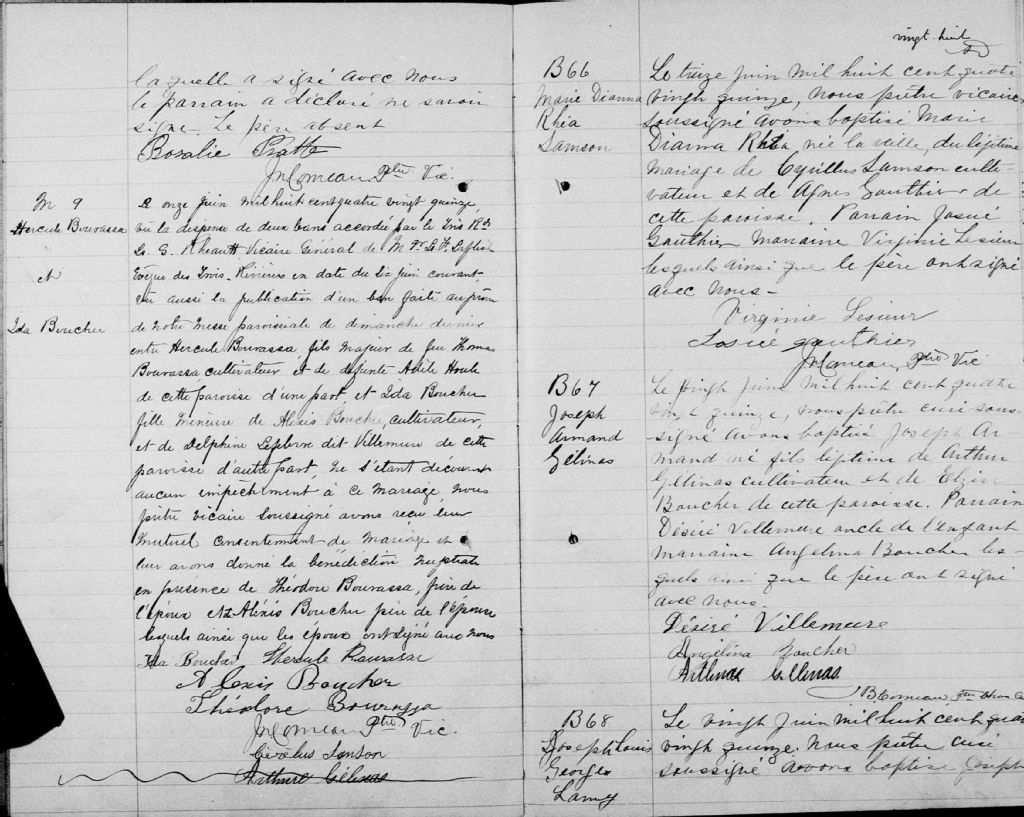 laquelle a signé avec nous
le parrain a déclaré ne savoir
signer. Le père absent
Rosalie Pratte
Comeau Ptre Vic.
M 9
Hercule Bourassa
et
Ida Boucher
Le onze juin mil huit cent quatre vingt quinze,
vu la dispense de deux bans accordée par le Très Rd
Ls. S. Rheault Vicaire Général de M L. F. Laflèche
Evêque des Trois-Rivières en date du dix juin courant
vu aussi la publication d'un ban faite au prône
de notre messe paroissiale de dimanche dernier
entre Hercule Bourassa, fils majeur de feu Thomas
Bourassa cultivateur et de défunte Adèle Houle
de cette paroisse d'une part et Ida Boucher
fille mineure de Alexis Boucher, cultivateur,
et de Delphine Lefebvre dit Villemure de cette
paroisse d'autre part, ne s'étant découvert
aucun empêchement à ce mariage, nous
prêtre vicaire soussigné avons reçu leur
mutuel consentement de mariage et
leur avons donné la bénédiction nuptiale
en présence de Théodore Bourassa, frère de
l'époux et Alexis Boucher père de l'épouse
lesquels ainsi que les époux ont signé avec nous
Ida Boucher Hercule Bourassa
Alexis Boucher
Théodore Bourassa
Comeau Ptre Vic.
Samson
Arthure Gélinas
vingt-huit
B66
Marie Dianna
Rhéa
Samson
Le treize juin mil huit cent quatre
vingh quinze, nous prêtre vicaire
soussigné avons baptisé Marie
Dianna Rhéa née la veille, du légitime
mariage de Cyrillus Samson culti-
vateur et de Agnes Gauthier de
cette paroisse. Parrain Josué
Gauthier Marraine Virginie Lesieur
lesquels ainsi que le père ont signé
avec nous-
Virginie Lesieur
Josué gauthier
Comeau Ptre Vic
B67
Joseph
Armand
Gélinas
Le vingh juin mil huit cent quatre
vingt quinze, nous prêtre curé sous-
signé avons baptisé Joseph Ar-
mand né fils légitime de Arthur
Gélinas cultivateur et de
Boucher de cette paroisse. Parrain
Désiré Villemure oncle de l'enfant
marraine Angelina Boucher les-
quels ainsi que le père ont signé
avec nous.
Désiré Villemure
Angélina Boucher
Arthur Gélinas
Comeau
B68
Joseph Louis
Georges
Lamy
Le vingh juin mil huit cent quatre
vingh quinze. Nous prêtre curé
soussigné avons baptisé Joseph